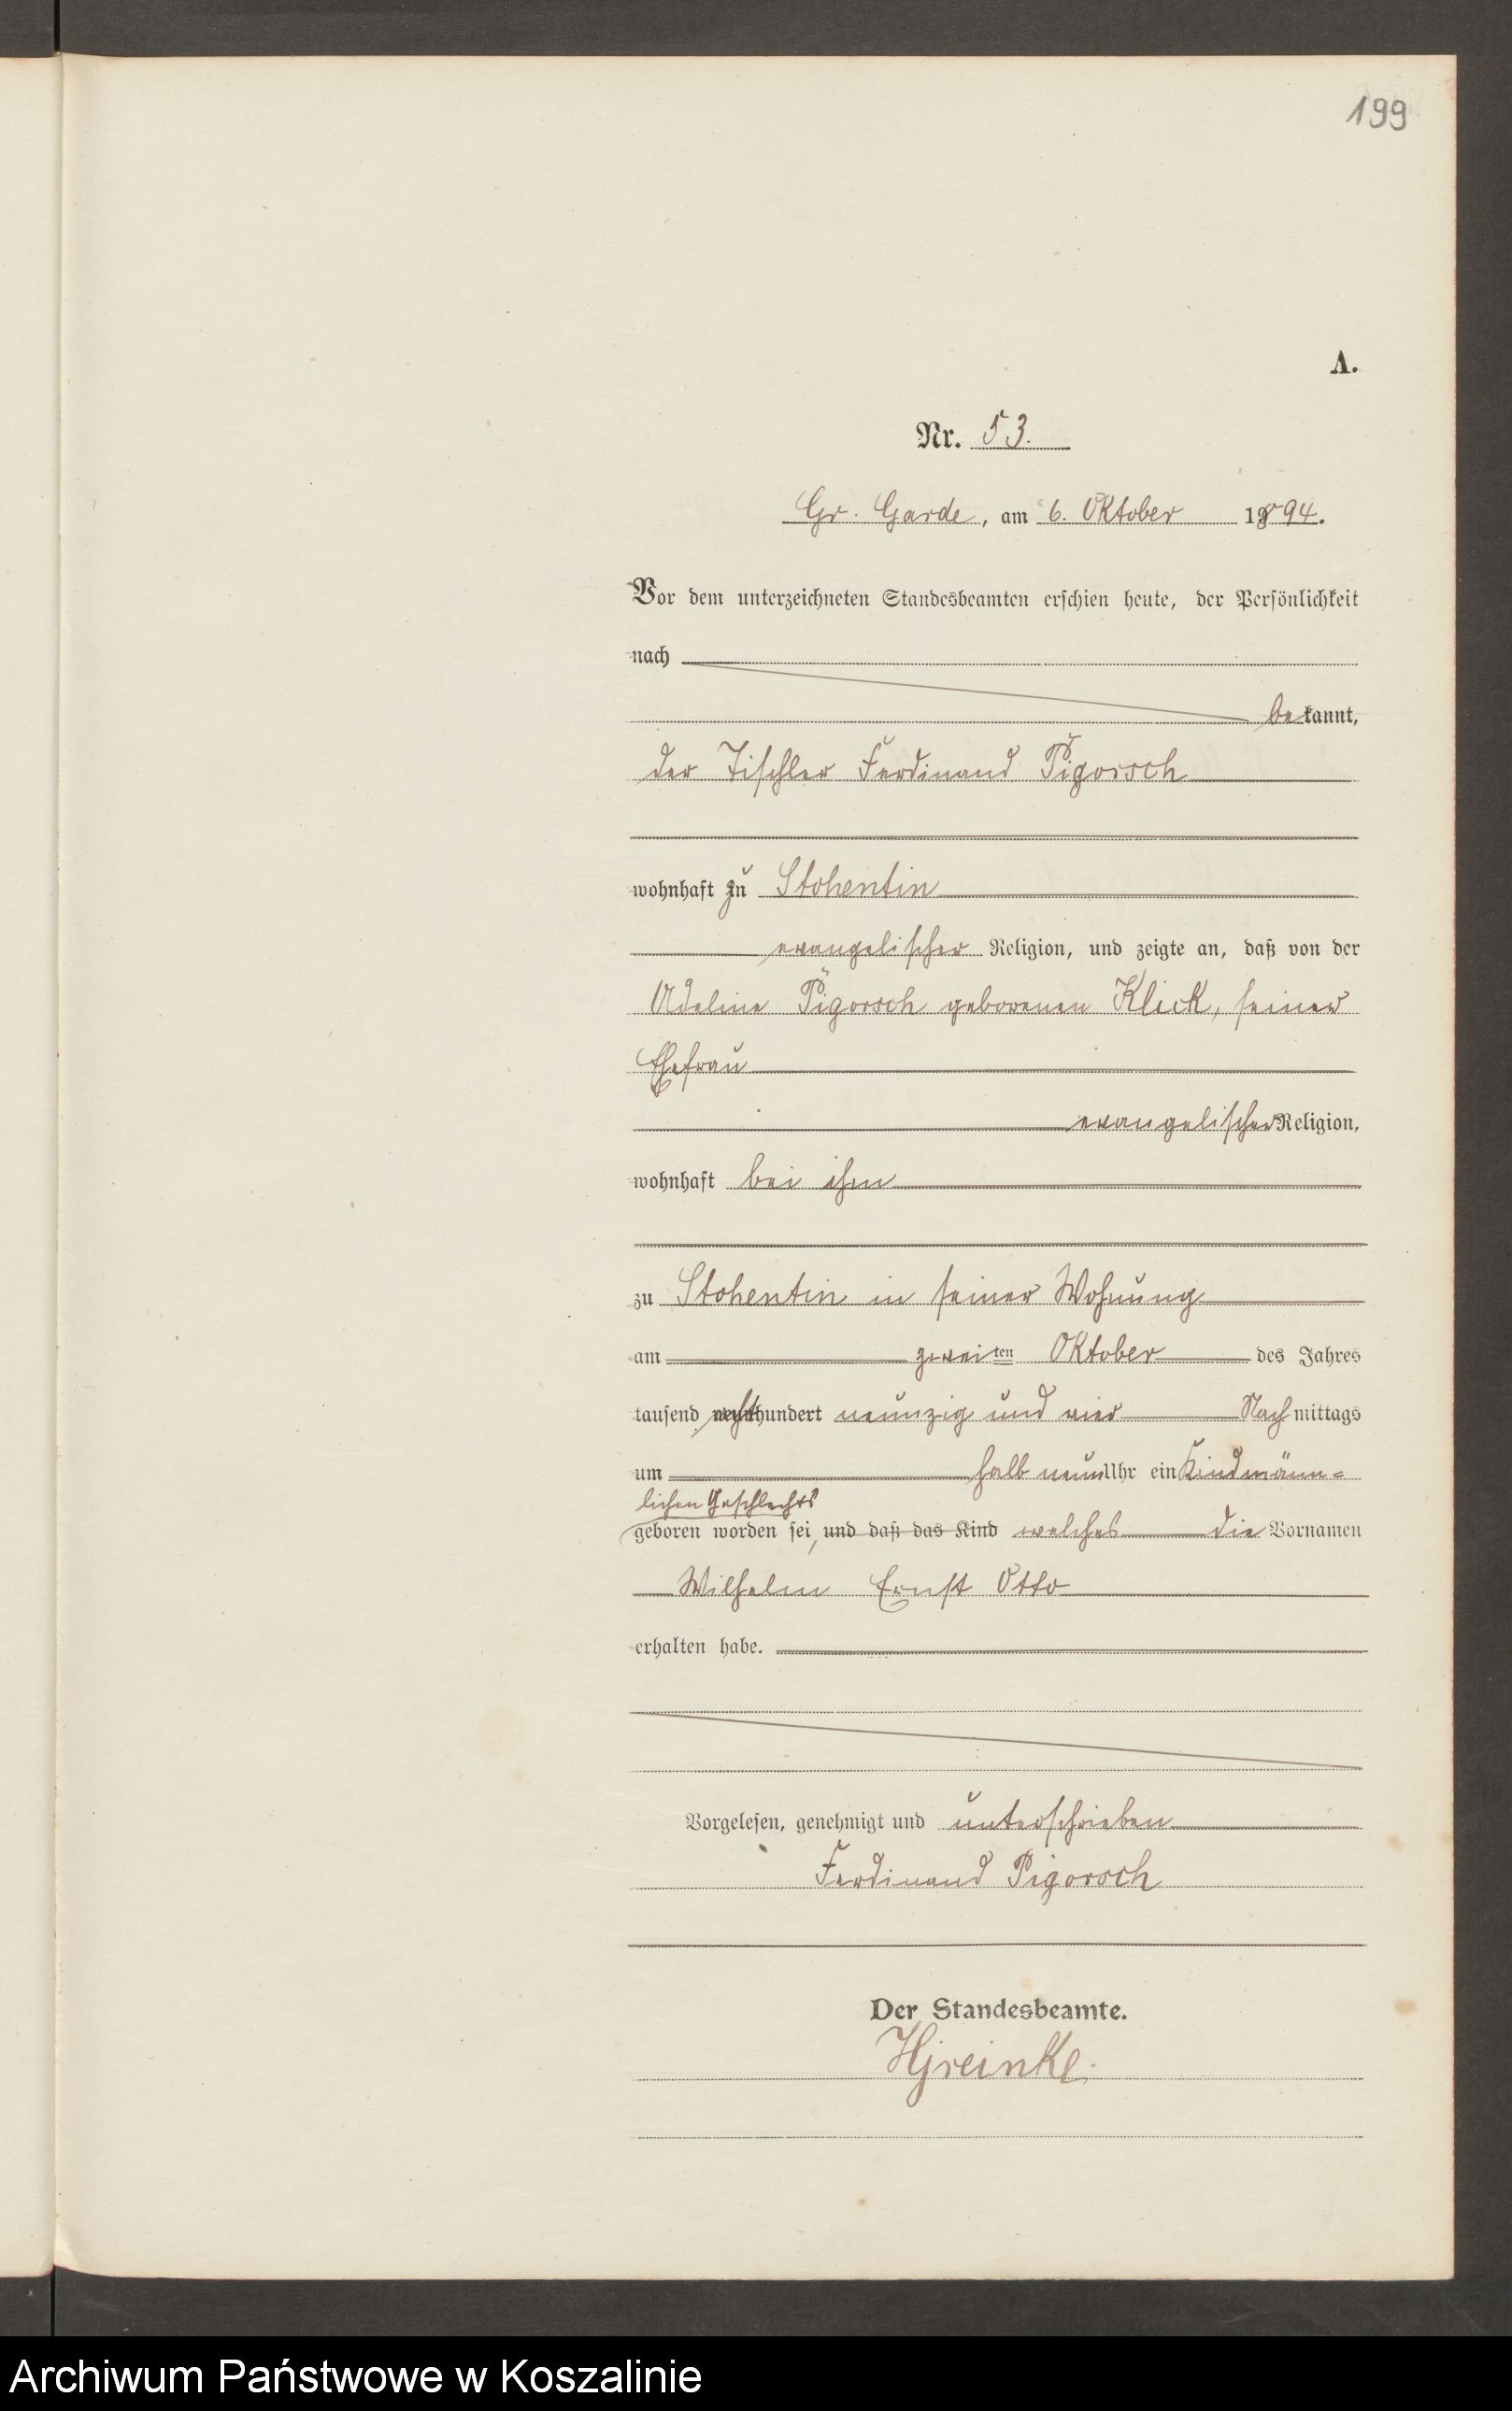 199
A.
Nr. 53.
Gr. Garde, am 6. Oktober 1894.
Vor dem unterzeichneten Standesbeamten erschien heute, der Persönlichkeit
nach
bekannt,
der Tischler Ferdinand Pigorsch
wohnhaft zu Stohentin
evangelischer Religion, und zeigte an, daß von der
Adeline Pigorsch geborenen Klick, seiner
Ehefrau
evangelischer Religion,
wohnhaft bei ihm
zu Stohentin in seiner Wohnung
am zweiten Oktober des Jahres
tausend achthundert neunzig und vier Nachmittags
um halb neun Uhr ein Kind männ=
lichen Geschlechts
geboren worden sei, und daß das Kind welches die Vornamen
Wilhelm Ernst Otto
erhalten habe.
Vorgelesen, genehmigt und unterschrieben
Ferdinand Pigorsch
Der Standesbeamte.
Archiwum Państwowe w Koszalinie